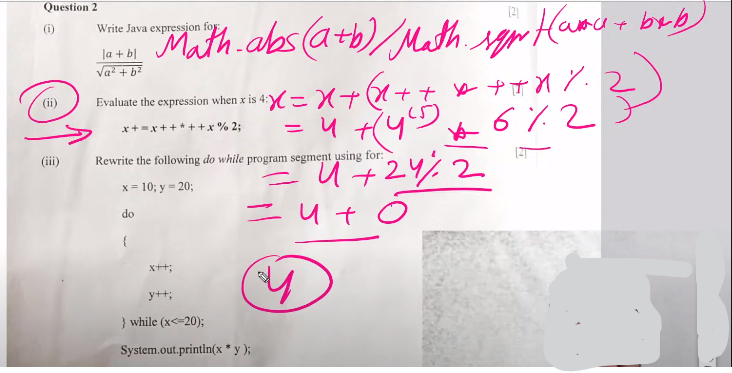 Question 2
[2]
(i) Write Java expression for:
|a + b|
√a² + b²
Math.abs(a+b)/Math.sqrt(a*a + b*b)
(ii) Evaluate the expression when x is 4:
x = x + (x++ * ++x % 2)
x + = x + + * + + x % 2;
= 4 + (4(5) * 6 % 2)
[2]
(iii) Rewrite the following do while program segment using for:
= 4 + 24 % 2
x = 10; y = 20;
= 4 + 0
do
{
x++;
4
y++;
} while (x<=20);
System.out.println(x * y );